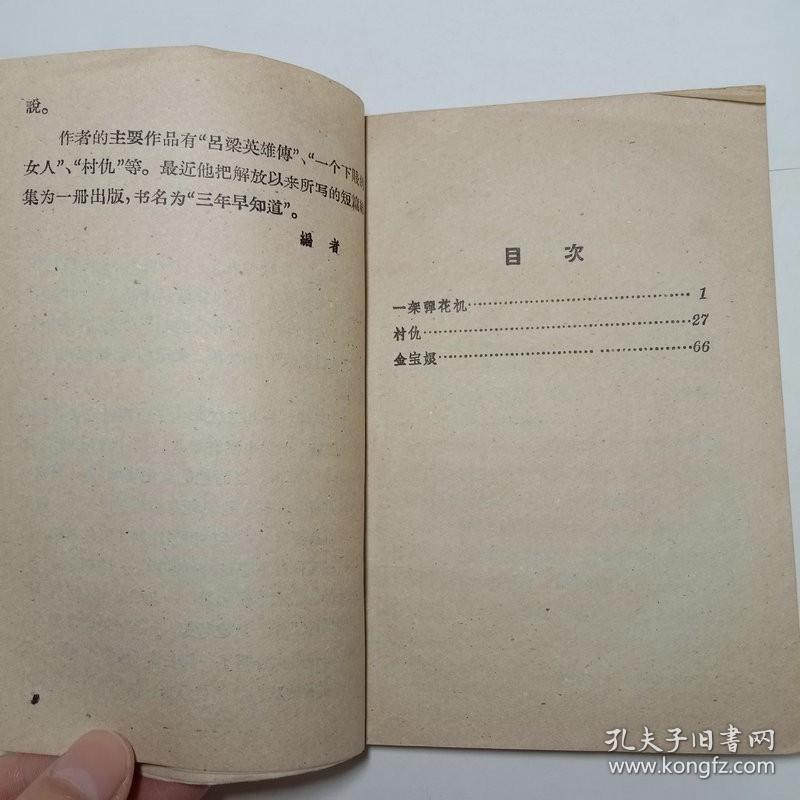 說。
作者的主要作品有“呂梁英雄傳”、“一个下賤
女人”、“村仇”等。最近他把解放以来所写的短篇
集为一册出版，书名为“三年早知道”。
編者
目次
一架彈花机……1
村仇……27
金宝娘……66
孔夫子旧書网
www.kongfz.com